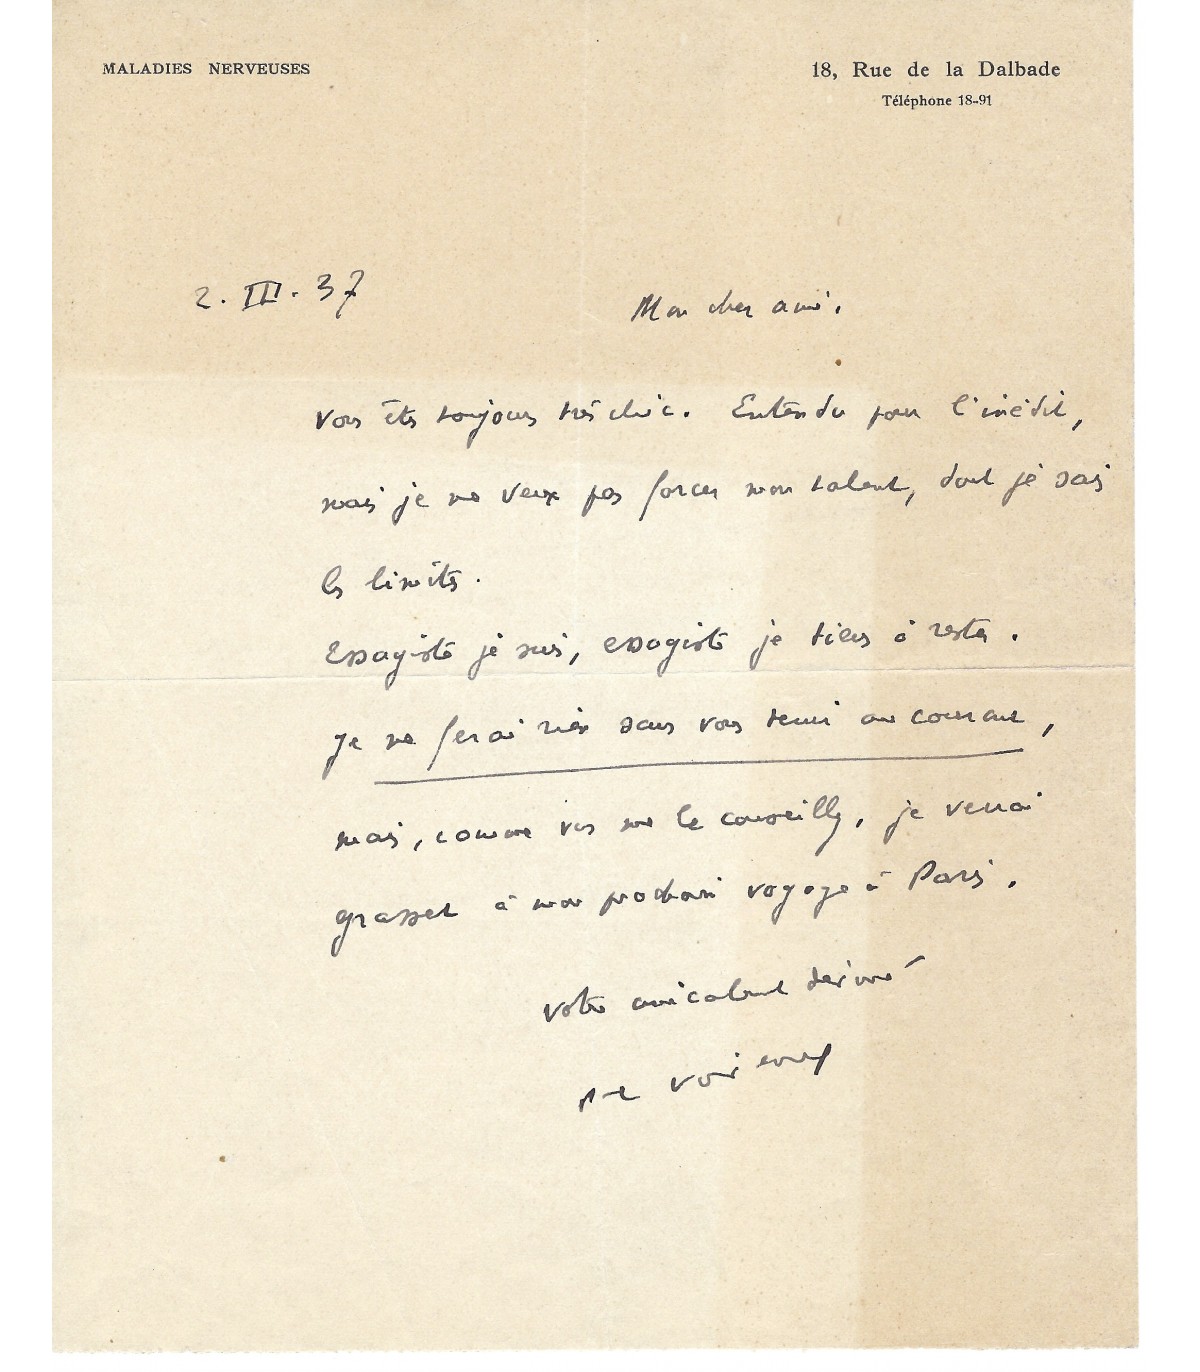 MALADIES NERVEUSES
18, Rue de la Dalbade
Téléphone 18-91
2. III. 37
Mon cher ami.
Vous êtes toujours très chic. Entendu pour l'inédit,
mais je ne veux pas forcer mon talent, dont je sais
les limites.
Essayiste je suis, essayiste je tiens à rester.
Je ne ferai rien sans vous tenir au courant,
mais, comme vous me le conseillez, je verrai
grasset à mon prochain voyage à Paris.
Votre amicalement
Voivenel